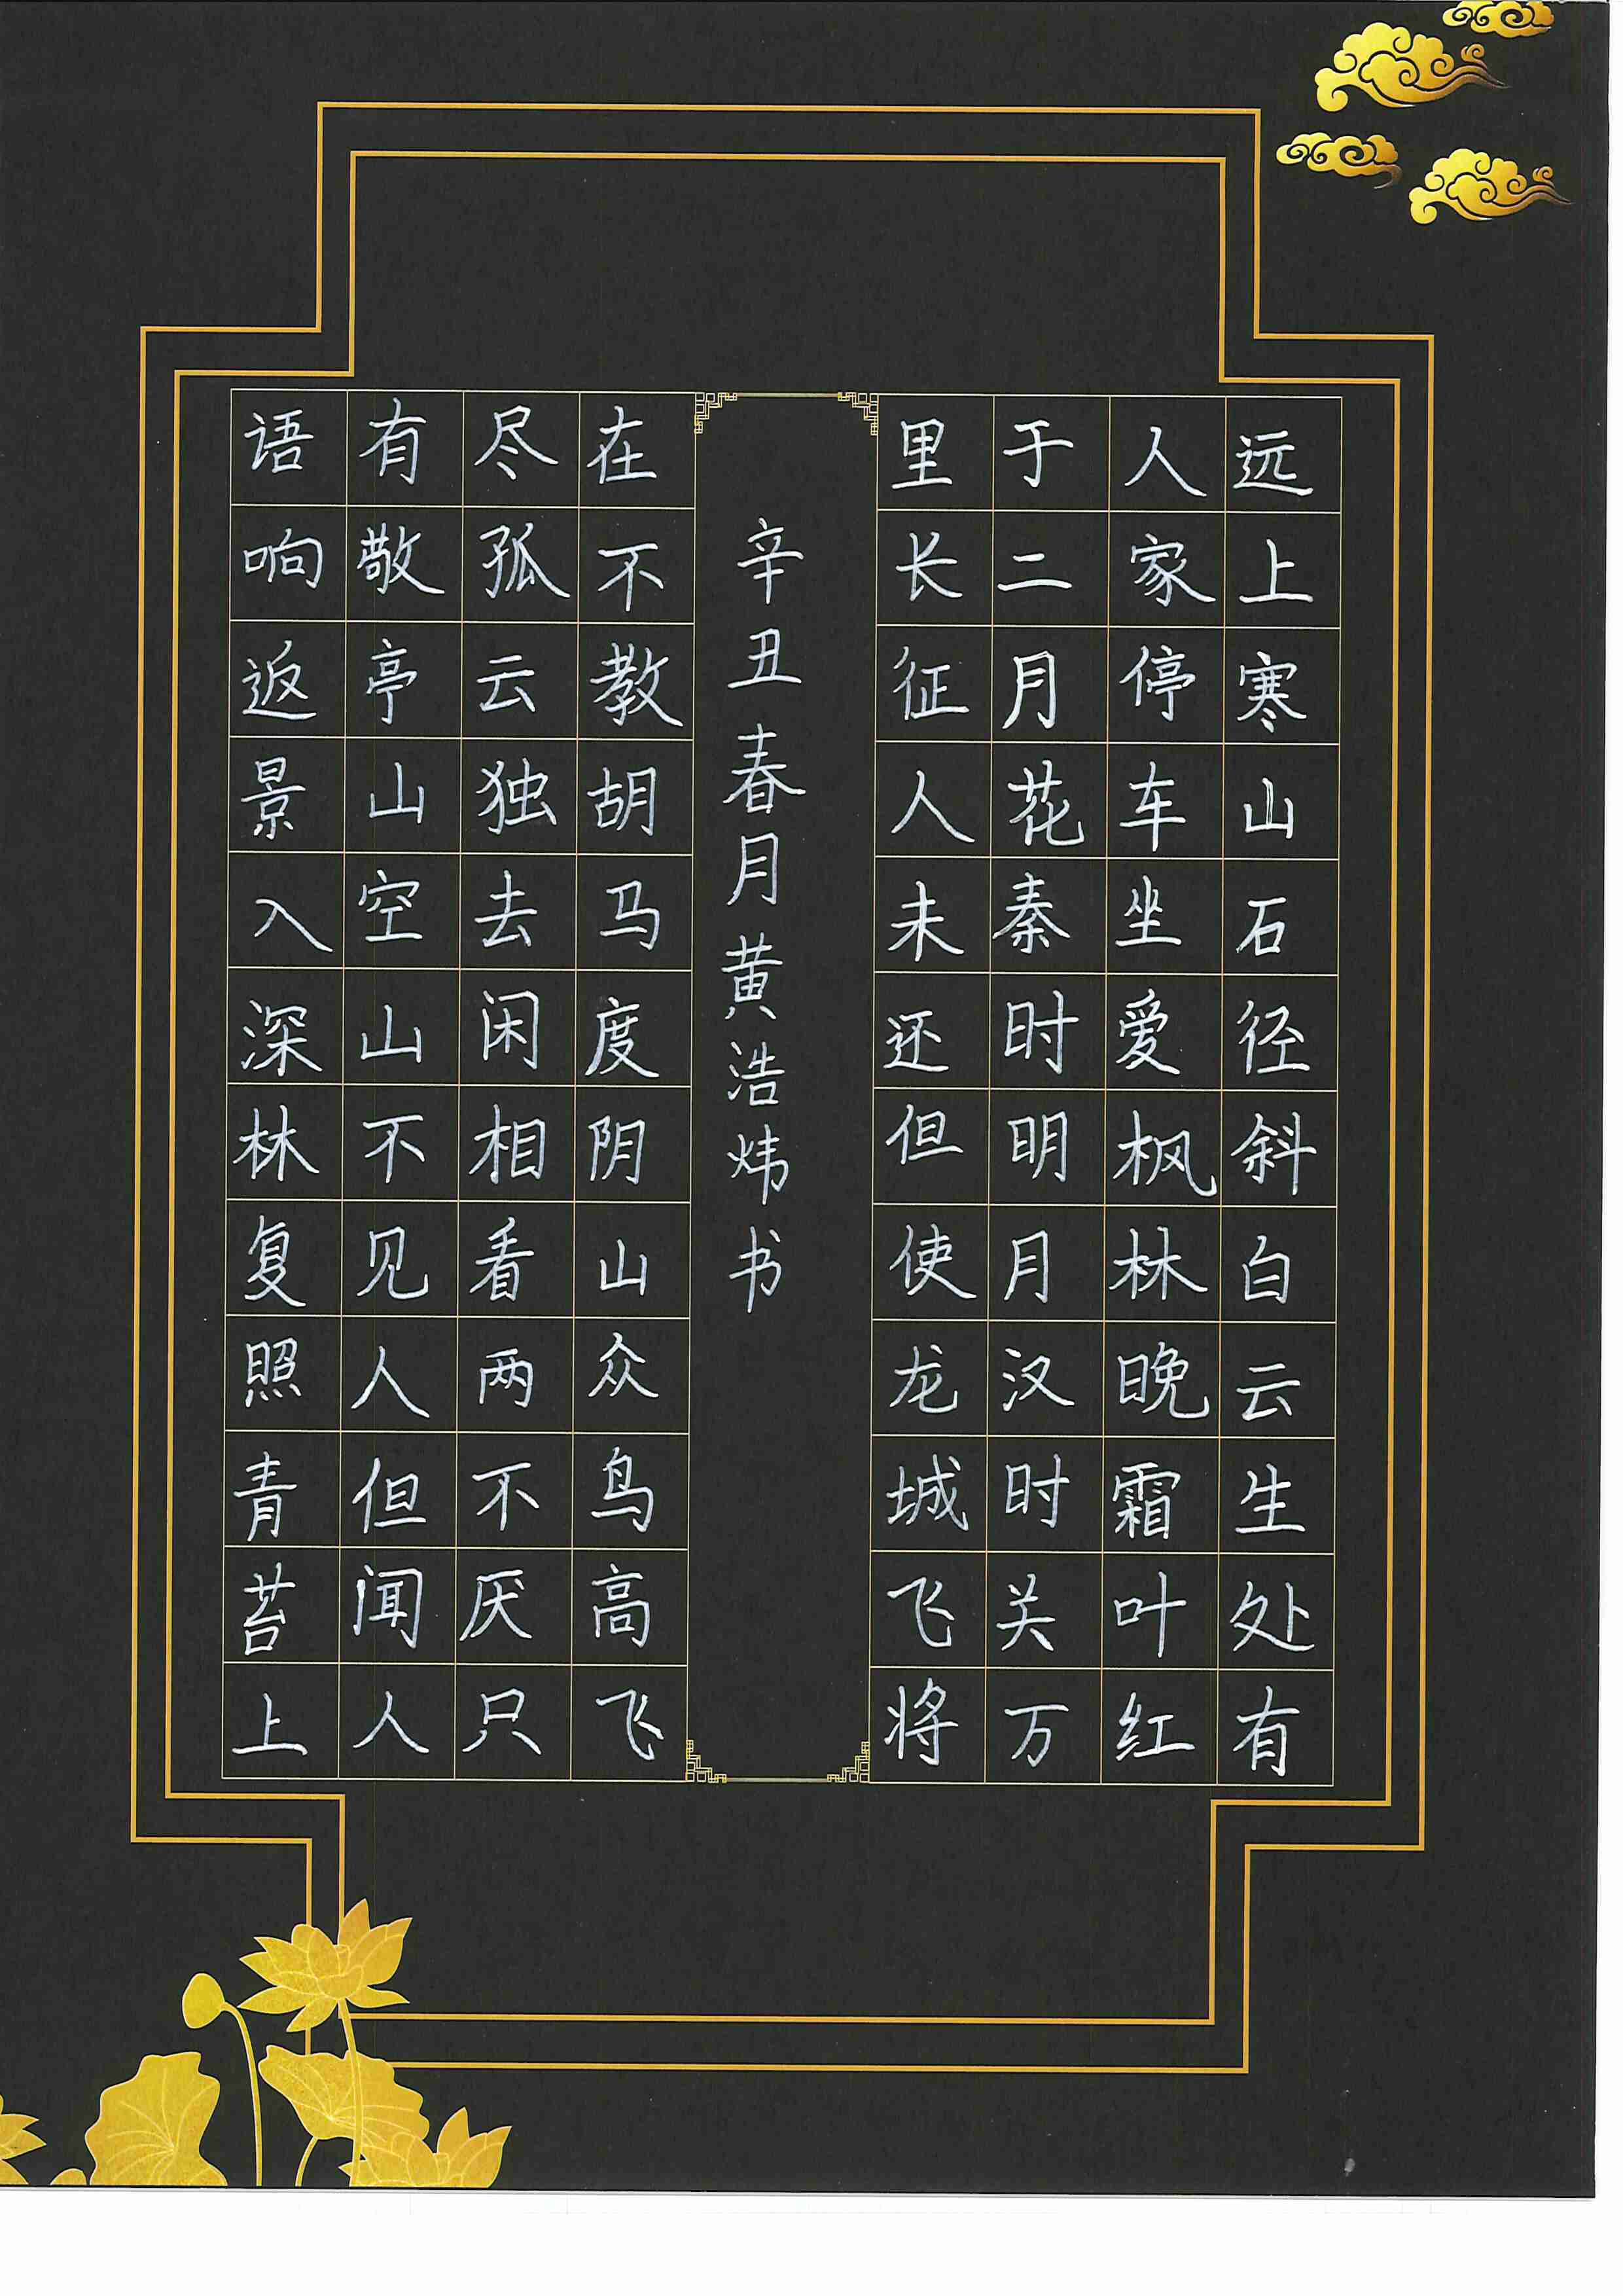 远上寒山石径斜白云生处有
人家停车坐爱枫林晚霜叶红
于二月花秦时明月汉时关万
里长征人未还但使龙城飞将
辛丑春月黄浩炜书
在不教胡马度阴山众鸟高飞
尽孤云独去闲相看两不厌只
有敬亭山空山不见人但闻人
语响返景入深林复照青苔上